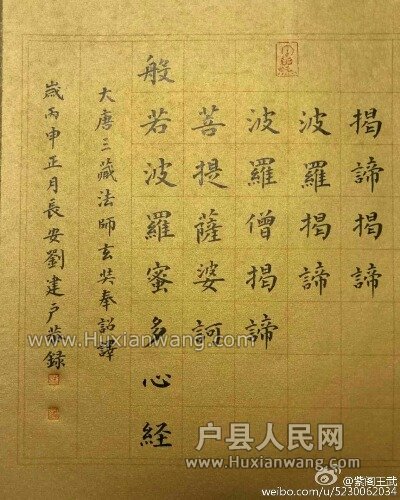 揭諦揭諦
波羅揭諦
波羅僧揭諦
菩提薩婆訶
般若波羅蜜多心経
大唐三藏法師玄奘奉詔譯
歲丙申正月長安劉建戶恭錄
www.Huxianwang.com
户县人民网
www.Huxianwang.com
@紫阁王武
weibo.com/u/5230062034